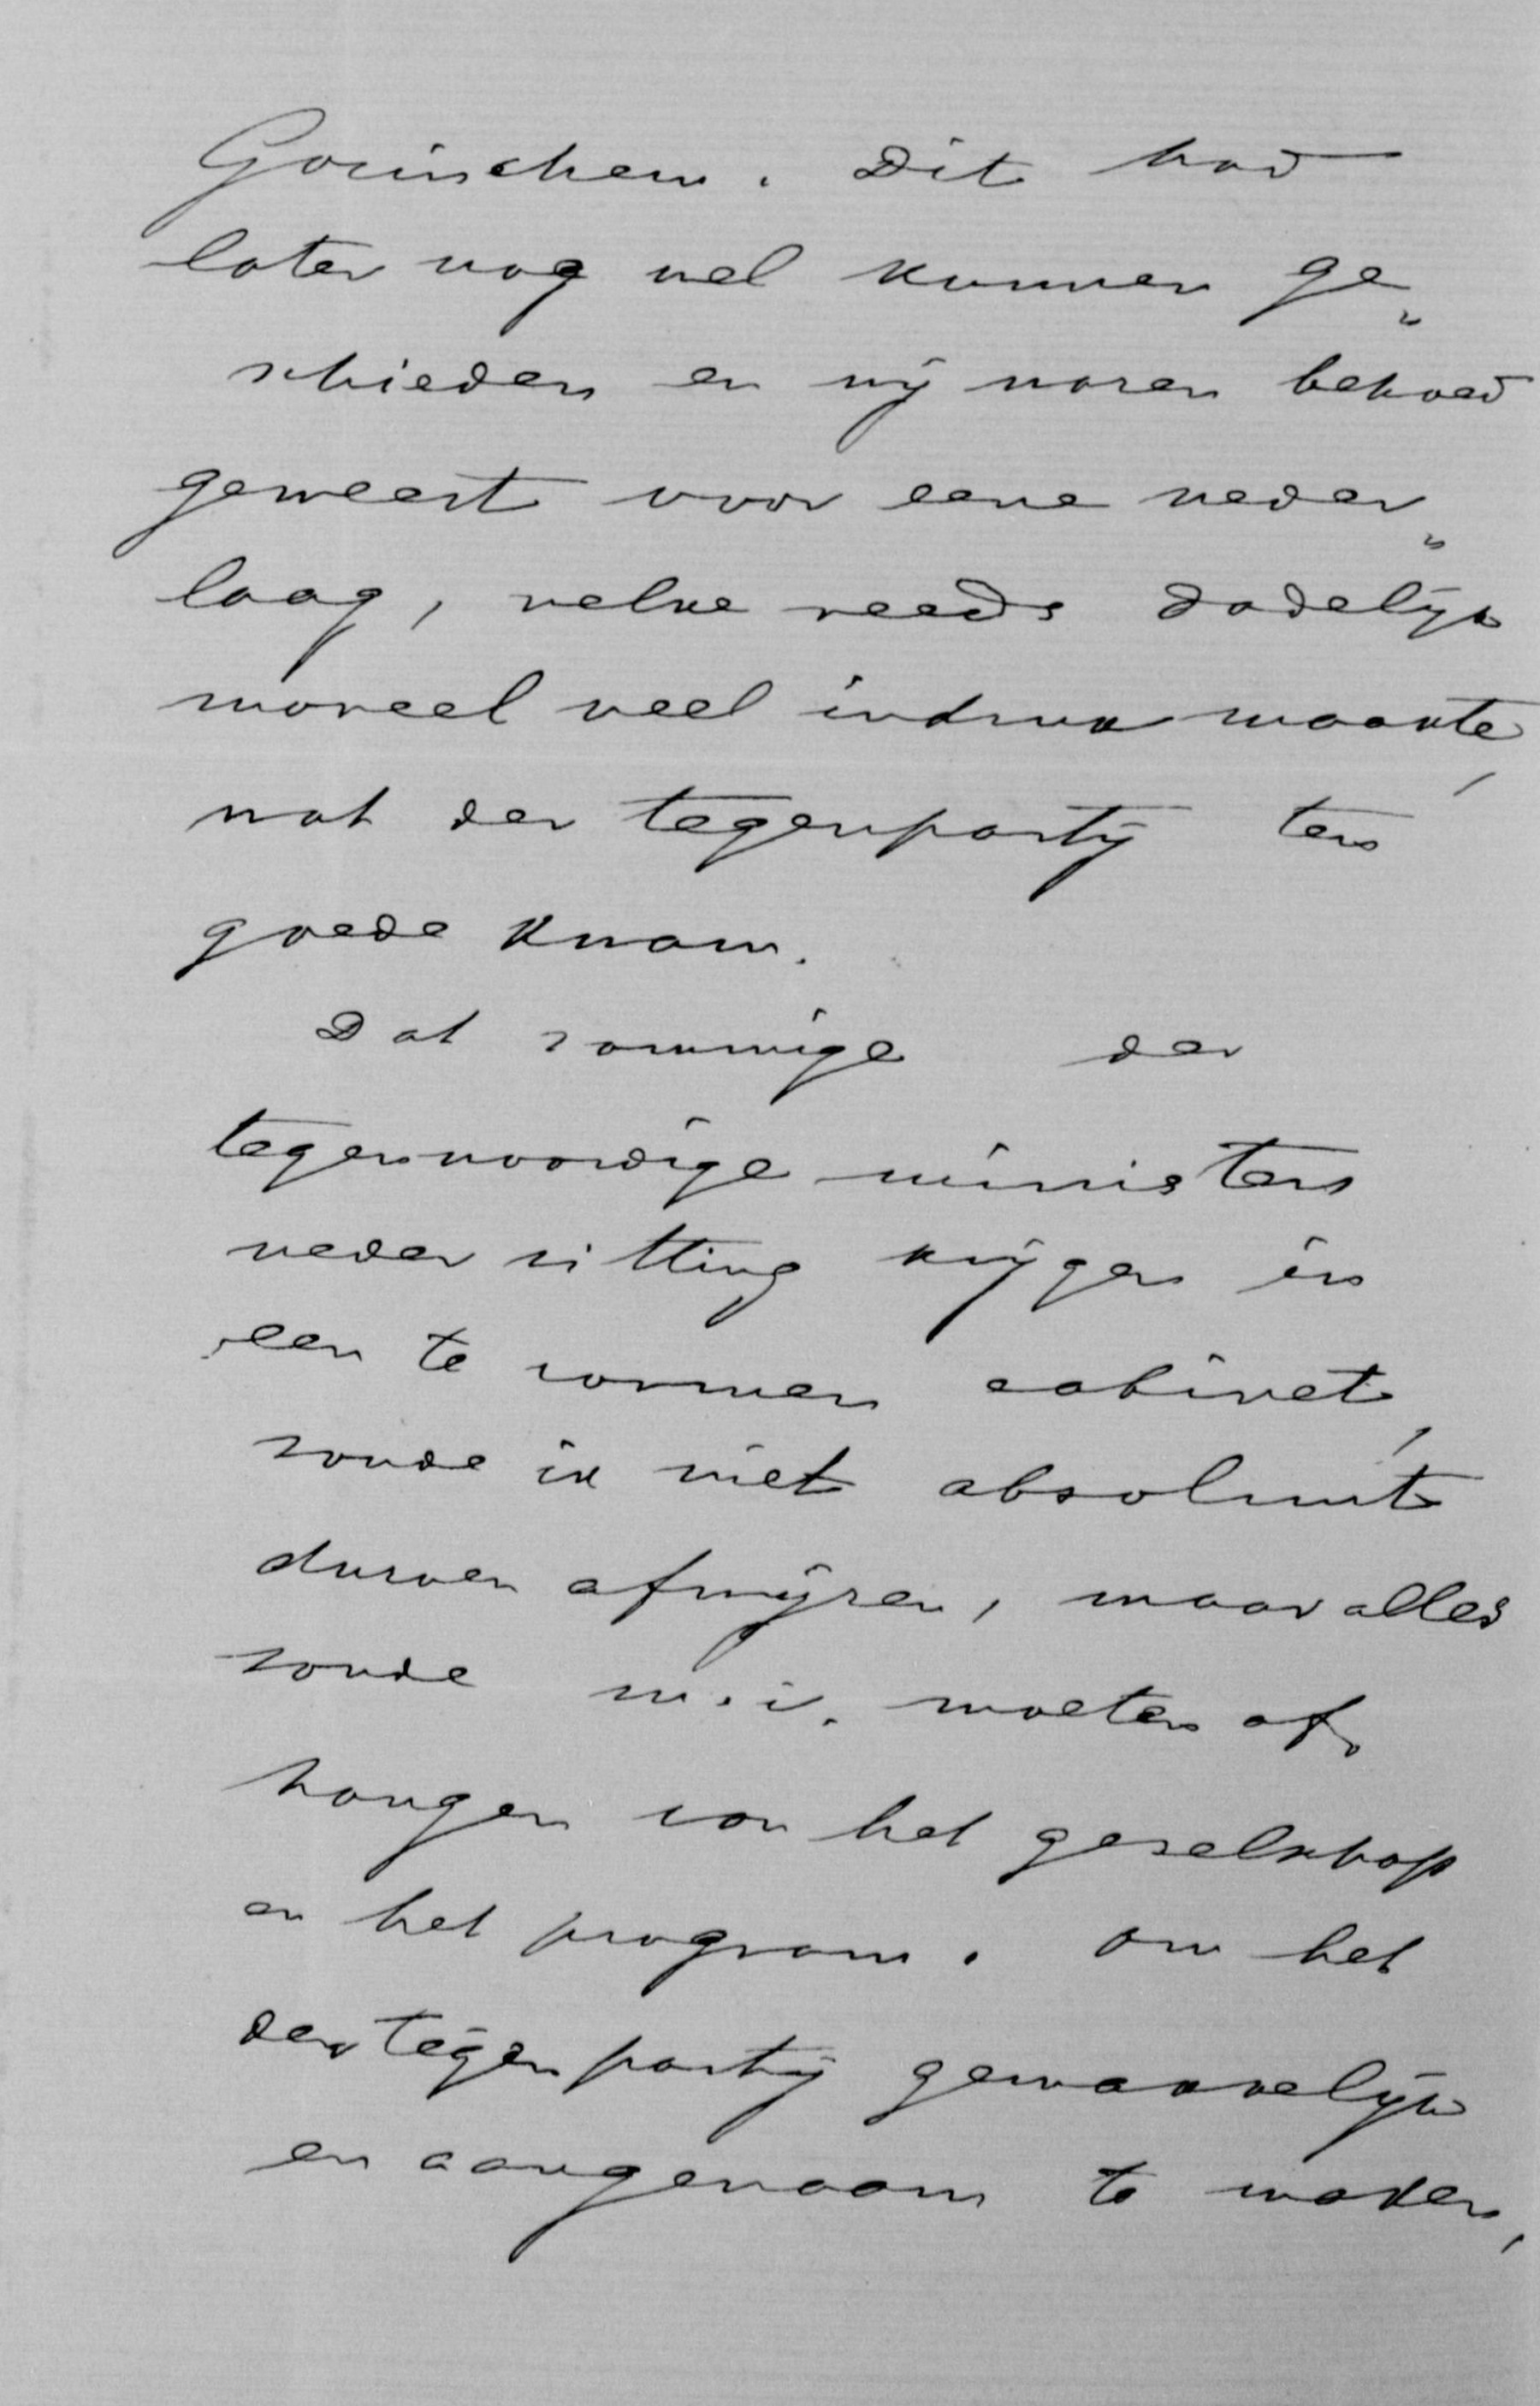 Gorinchem. Dit had
later nog wel kunnen ge„
schieden en wij waren behoed
geweest voor eene neder„
laag, welke reeds dadelijk
moreel veel indruk maakte,
wat der tegenpartij ten
goede kwam.
Dat sommige der
tegenwoordige ministers
weder zitting krijgen in
een te vormen cabinet,
zoude ik niet absoluut
durven afwijzen, maar alles
zoude m.i. moeten af„
hangen van het gezelschap
en het program. Om het
der tegenpartij gemakkelijk
en aangenaam te maken,